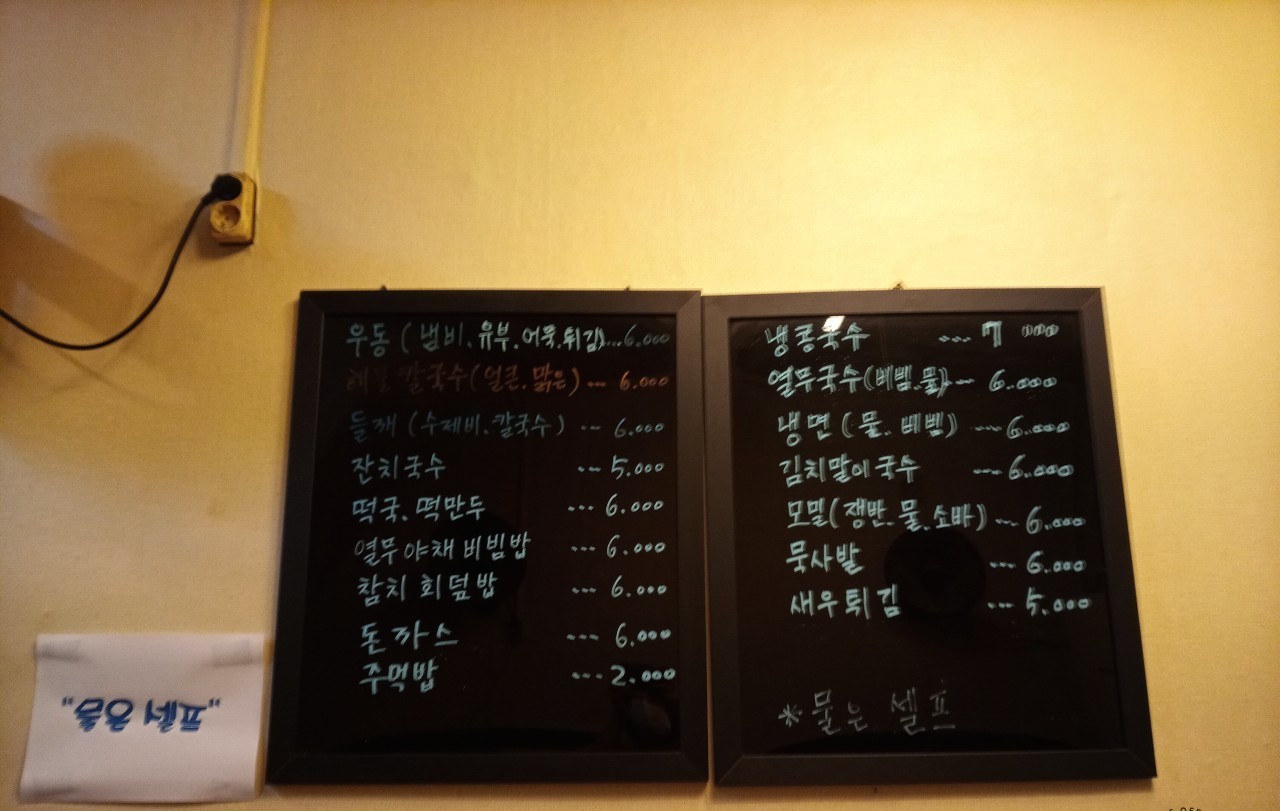 우동 ( 냄비. 유부. 어묵. 튀김)...6.000
해물 칼국수 (얼큰. 맑은) --- 6.000
들깨 (수제비. 칼국수) --- 6.000
잔치국수 --- 5.000
떡국. 떡만두 --- 6.000
열무 야채 비빔밥 --- 6.000
참치 회덮밥 --- 6.000
돈까스 --- 6.000
주먹밥 --- 2.000
냉콩국수 --- 7 000
열무국수(비빔.물)-- 6.000
냉면 (물. 비빔) ---6.000
김치말이 국수 --- 6.000
모밀(쟁반. 물. 소바) --- 6.000
묵사발 --- 6.000
새우튀김 --- 5.000
*물은 셀프
"물은 셀프"